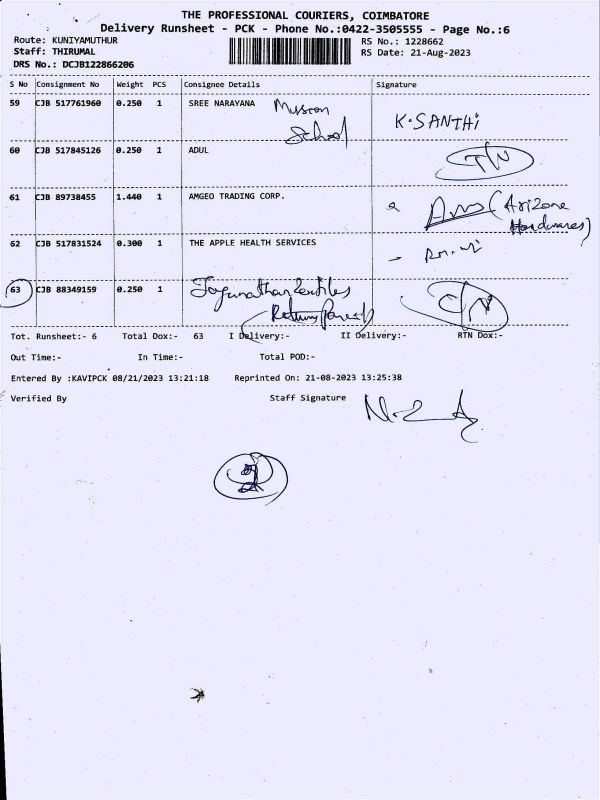 THE PROFESSIONAL COURIERS, COIMBATORE
Delivery Runsheet - PCK - Phone No.:0422-3505555 - Page No.:6
Route: KUNIYAMUTHUR RS No.: 1228662
Staff: THIRUMAL RS Date: 21-Aug-2023
DRS No.: DCJB122866206
S No Consignment No Weight PCS Consignee Details Signature
59 CJB 517761960 0.250 1 SREE NARAYANA Mission K.SANTHi
School
60 CJB 517845126 0.250 1 ADUL
61 CJB 89738455 1.440 1 AMGEO TRADING CORP. (Arizone
Hardwares)
62 CJB 517831524 0.300 1 THE APPLE HEALTH SERVICES
63 CJB 88349159 0.250 1
Tot. Runsheet:- 6 Total Dox:- 63 I Delivery:- II Delivery:- RTN Dox:-
Out Time:- In Time:- Total POD:-
Entered By :KAVIPCK 08/21/2023 13:21:18 Reprinted On: 21-08-2023 13:25:38
Verified By Staff Signature